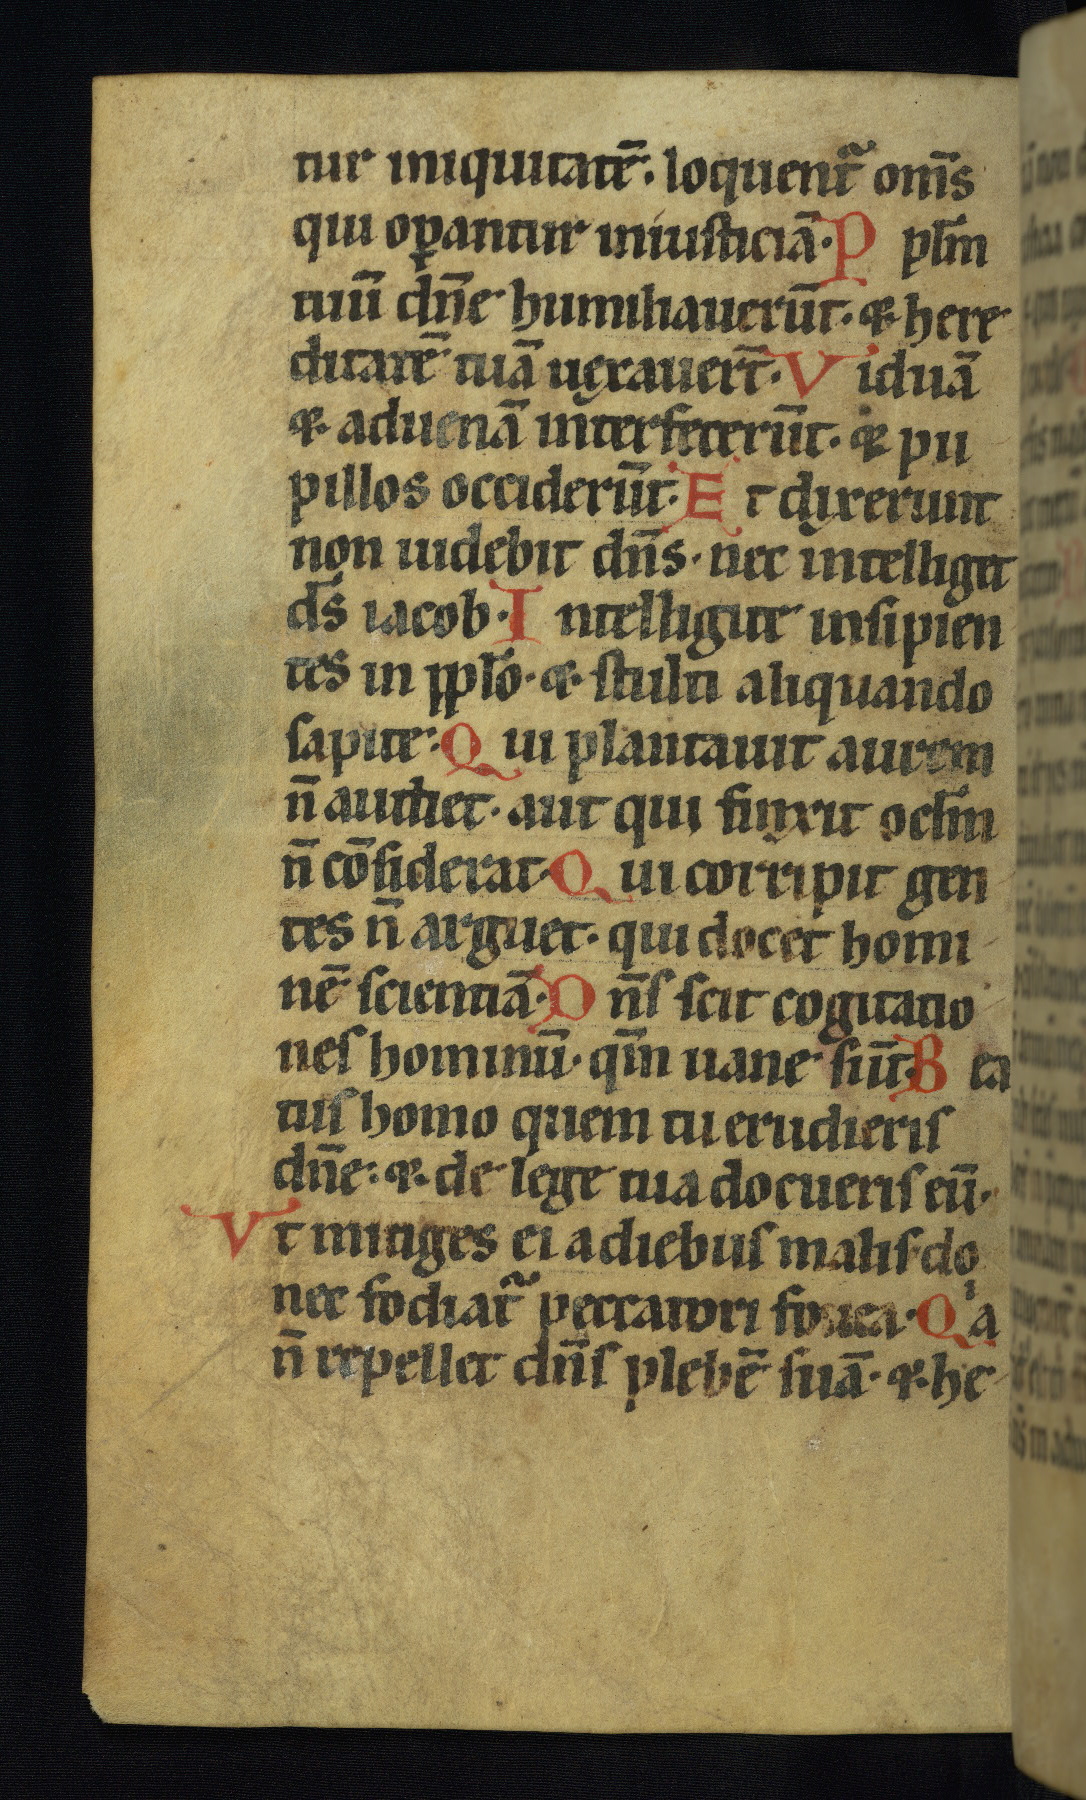 tur iniquitatē. loquent᷑ om̄s
qui oꝑantur iniusticiā. P pl̄m
tuū dn̄e humiliauerūt. ꞇ here
ditatē tuā uexauer̄t. Viduā
ꞇ aduenā interfecerūt. ꞇ pu
pillos occiderūt. Et dixerunt
non uidebit dn̄s. nec intelliget
ds̄ iacob. Intelligite insipien
tes in ppl̄o. ꞇ stulti aliquando
sapite. Qui plantauit aurem
n̄ audiet. aut qui finxit ocl̄m
n̄ cōsiderat. Qui corripit gen
tes n̄ arguet. qui docet homi
nē scientiā. Dn̄s scit cogitatio
nes hominū. qm̄ uane sūt. Bea
tus homo quem tu erudieris
dn̄e. ꞇ de lege tua docueris eū.
Vt mitiges ei a diebus malis. do
nec fodiat᷑ peccatori fouea. Qⁱa
n̄ repellet dn̄s plebē suā. ꞇ he